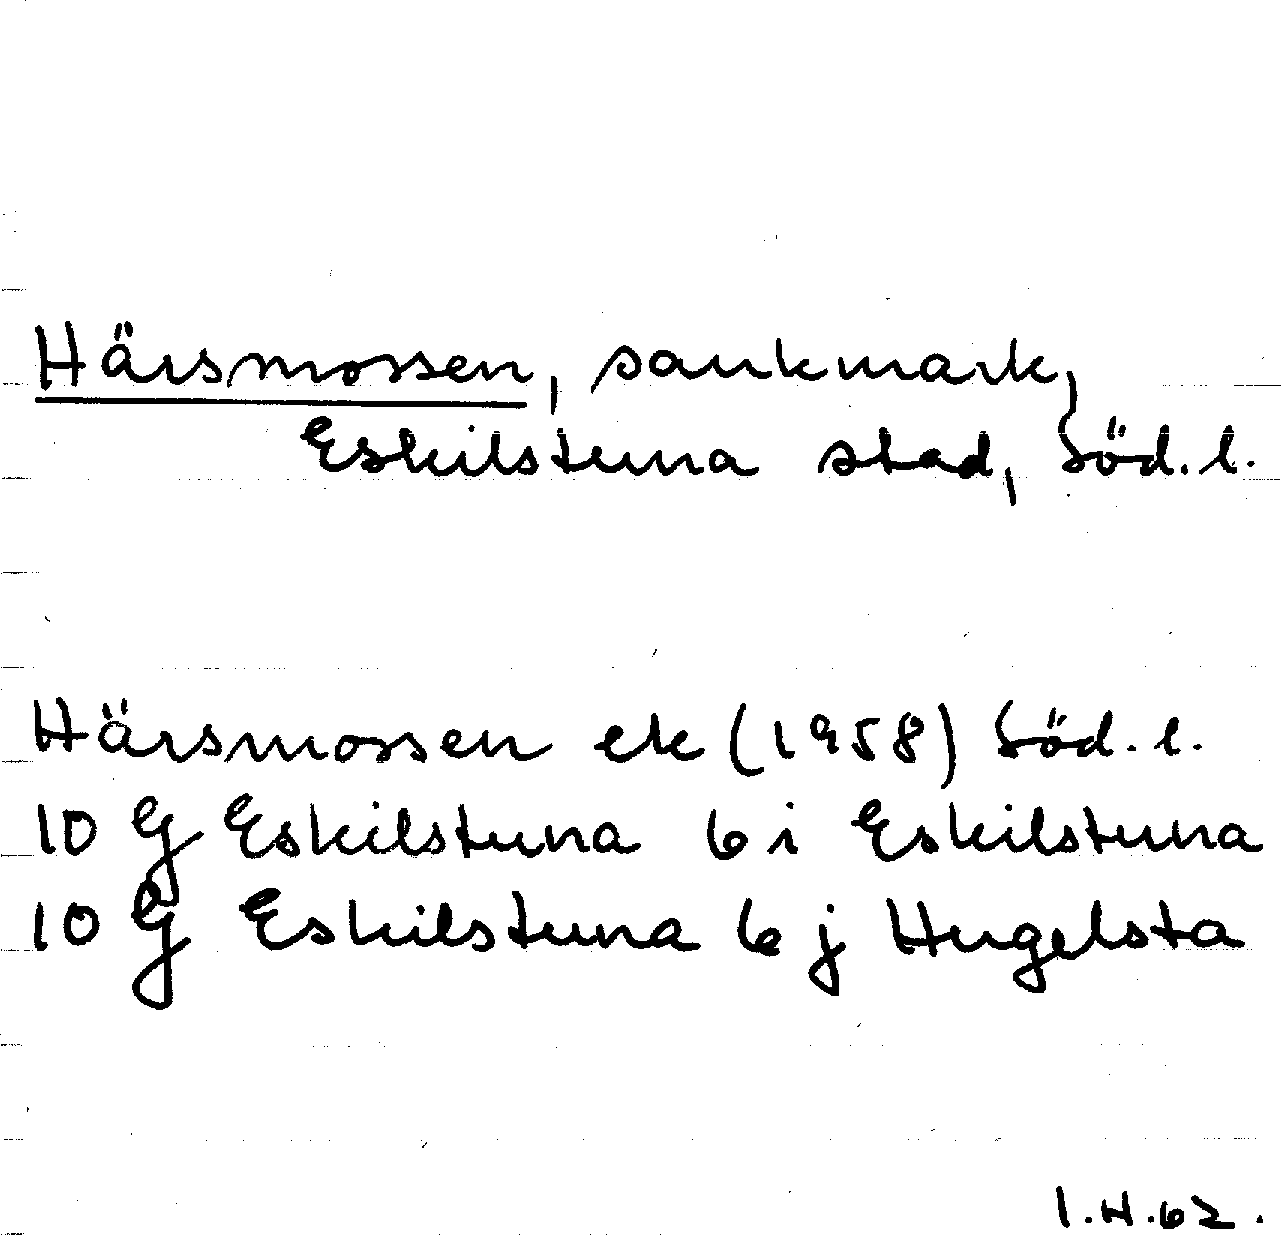 Härsmossen, sankmark,
Eskilstuna stad, Söd. l.
Härsmossen ek (1958) Söd. l.
10 G Eskilstuna 6 i Eskilstuna
10 G Eskilstuna 6 j Hugelsta
I.H.62.